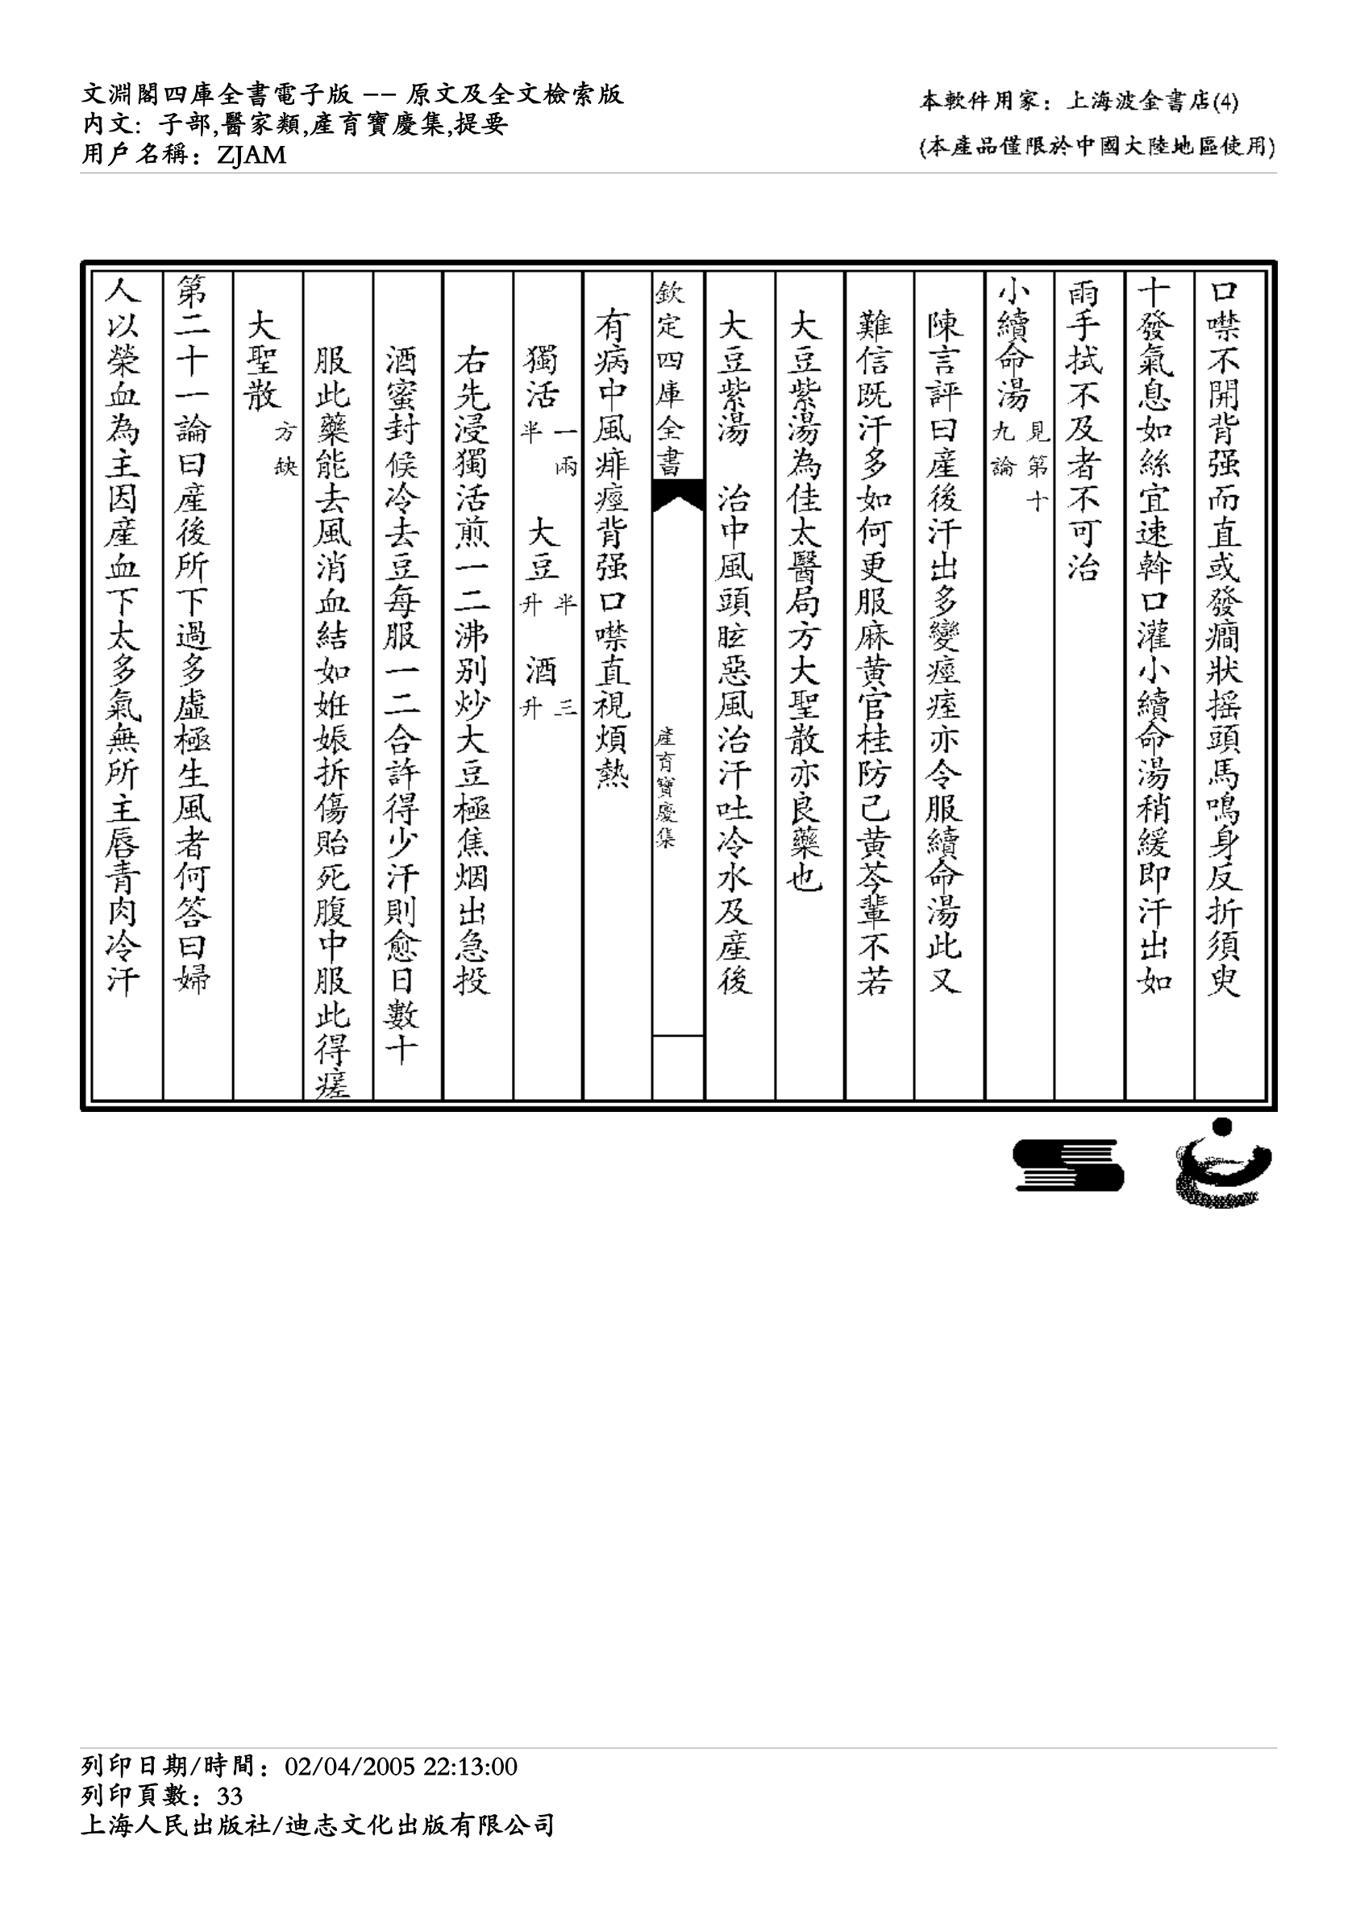 文淵閣四庫全書電子版 -- 原文及全文檢索版
内文: 子部,醫家類,產育寶慶集,提要
用戶名稱: ZJAM
本軟件用家: 上海波金書店(4)
(本產品僅限於中國大陸地區使用)
口噤不開背强而直或發癎狀揺頭馬鳴身反折須臾
十發氣息如絲宜速斡口灌小續命湯稍緩即汗出如
雨手拭不及者不可治
小續命湯見第十九論
陳言評曰産後汗出多變痙痓亦令服續命湯此又
難信既汗多如何更服麻黄官桂防己黄芩輩不若
大豆紫湯為佳太醫局方大聖散亦良藥也
大豆紫湯 治中風頭眩惡風治汗吐冷水及産後
欽定四庫全書 産育寶慶集
有病中風痱痙背强口噤直視煩熱
獨活一兩半 大豆半升 酒三升
右先浸獨活煎一二沸别炒大豆極焦烟出急投
酒蜜封候冷去豆每服一二合許得少汗則愈日數十
服此藥能去風消血結如姙娠拆傷貽死腹中服此得瘥
大聖散方缺
第二十一論曰産後所下過多虛極生風者何答曰婦
人以榮血為主因産血下太多氣無所主唇青肉冷汗
列印日期/時間: 02/04/2005 22:13:00
列印頁數: 33
上海人民出版社/迪志文化出版有限公司